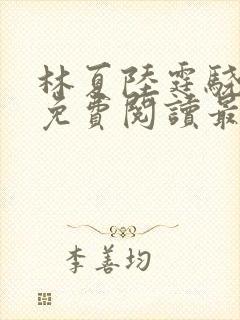 林夏陸霆驍
免費閱讀最
李善均